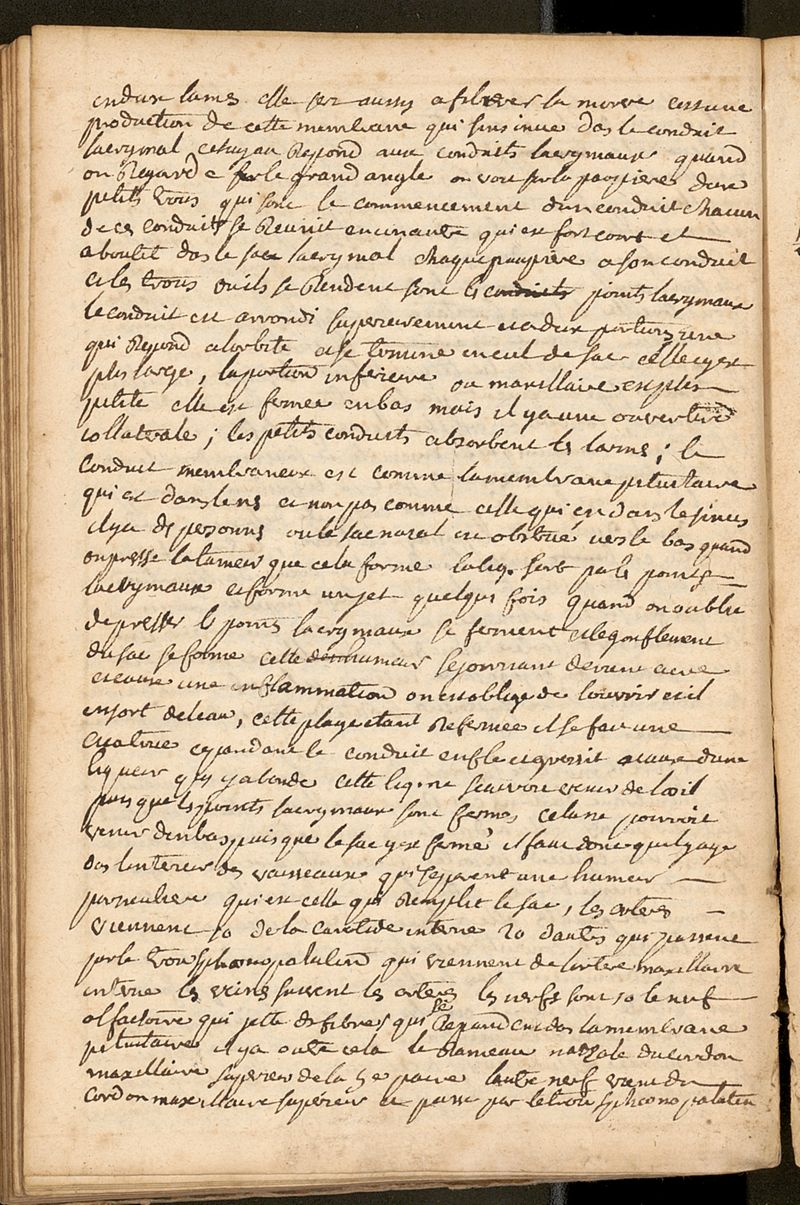 en deux lames elle sert aussy a filtrer la morve cest une
production de cette membrane qui sinsinue das le conduit
lacrymal ce tuyau Repond aux conduits lacrymaux quand
on Regarde le grand angle on voit sur la paupieres deux
petits trous qui sont le commencement dun conduit chacun
de ces conduits se Reunit en un autre qui est fort court et
aboutit das le sac lacrymal chaque paupiere a son conduit
et les trous ou ils se Rendent sont les conduits points lacrymaux
le conduit est arrondi superieurement et a deux portions une
qui Repond a lorbite et se termine en cul de sac celle cy est
plus large, la portion inferieure ou maxillaire est plus
petite elle est fermée en bas mais il ya une ouverture
collaterale ; les petits conduits absorbent les larmes ; le
conduit membraneux est comme la membrane pituitaire
qui est dans le nes et non pas comme celle qui est dans les sinus
il ya des personnes ou le sac nasal est obstrué vers le bas quand
on presse la tumeur que cela forme la liq. sort par les points
lacrymaux et forme un jet quelques fois quand on oublie
de presser les points lacrymaux se ferment et le gonflement
du sac se forme cette humeur sejournant devient acre
et cause une inflammation on est oblige de louvrir et il
en sort de leau, cette playe etant Refermée il se fait une
cicatrice cependant le conduit enfle et grossit a cause dune
liqueur qui y abonde cette liq. ne scauroit venir de loeil
puis que les points lacrymaux sont fermes cela ne pouvoit
venir den bas puisque le sac y est fermé il faut donc quil y aye
das linterieur des vaisseaux qui separent une humeur
particuliere qui est celle qui Remplit le sac, les arteres
viennent 1o de la carotide interne 2o dautres qui passent
par le trou sphenopalatin qui viennent de lartere maxillaire
interne les veines suivent les arteres les nerfs sont 1o le nerf
olfactoire qui jette des fibres qui se Repandent das la membrane
pituitaire il ya outre cela le Rameau nazale du cordon
maxillaire superieur de la 5e paire lautre nerf vient du
cordon maxillaire superieur et passe par le trou spheno palatin